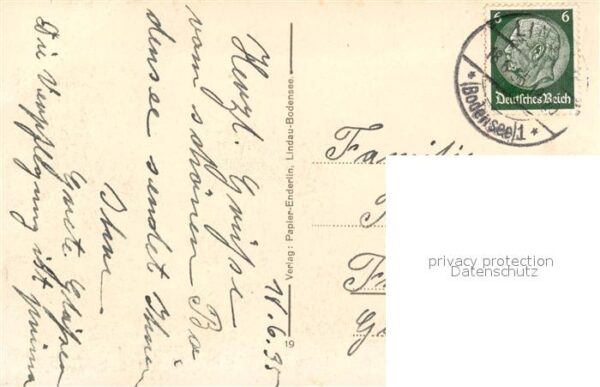 18.6.35
Herzl. Grüße
vom schönen Bo
densee sendet Ihnen
Ihne
Grete
Die Verpflegung ist prima
Verlag: Papier-Enderlin, Lindau-Bodensee.
19
Familie
6 6
Deutsches Reich
LIN
(Bodensee) 1
privacy protection
Datenschutz